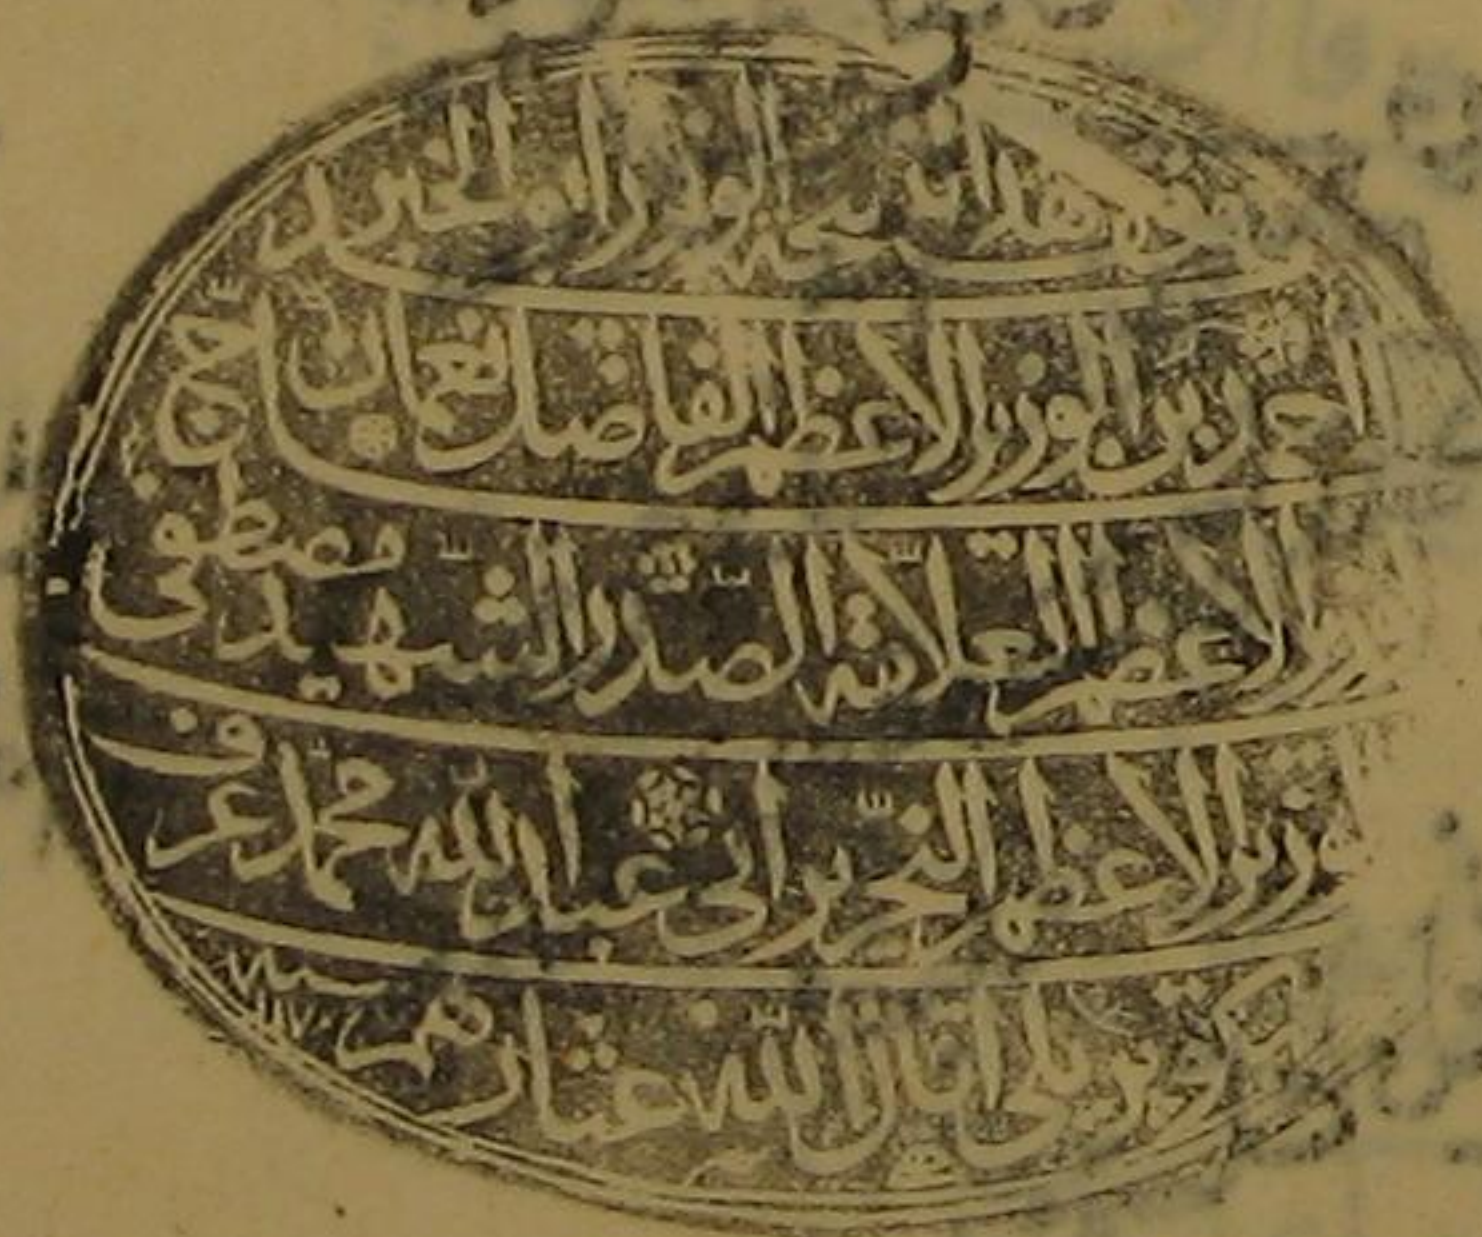 وقف هذا بحجه الوزير ابو الخير
احمد بن الوزير الاعظم الفاضل نعمان اخ
الاعظم العلامة الصدر الشهيد مصطفى
وزير الاعظم النحرير ابى عبد الله محمد عرف
كوپريلى اقال الله عثارهم سنه ١١٧٠